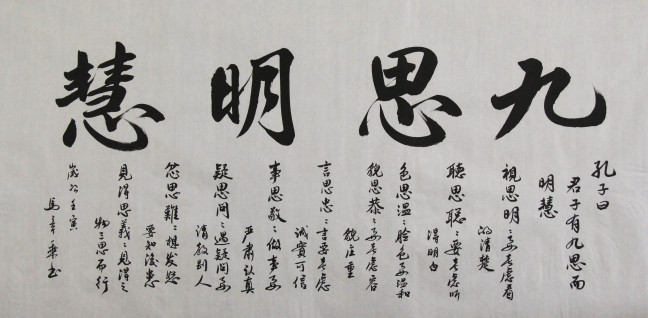 九思明慧
孔子曰
君子有九思而
明慧
視思明：要考慮看
的清楚
聽思聰：要考慮听
得明白
色思温：臉色要温和
貌思恭：要考慮容
貌庄重
言思忠：言要考慮
誠實可信
事思敬：做事要
严肃认真
疑思問：遇疑問要
请教别人
忿思難：想发怒
要知後患
見得思義：見得之
物三思而行
歲次壬寅
马章乘书